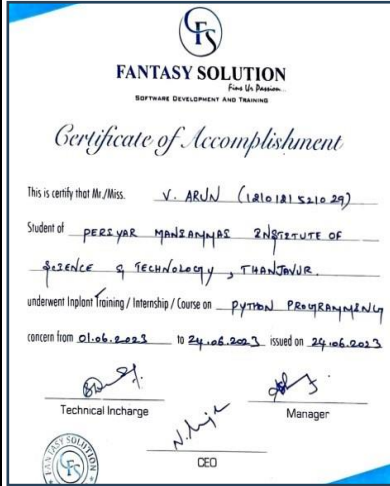 FANTASY SOLUTION
Fine Us Passion...
SOFTWARE DEVELOPMENT AND TRAINING
Certificate of Accomplishment
This is certify that Mr./Miss. V. ARUN (1210121521029)
Student of PERIYAR MANIAMMAI INSTITUTE OF
SCIENCE & TECHNOLOGY, THANJAVUR.
underwent Inplant Training / Internship / Course on PYTHON PROGRAMMING
concern from 01.06.2023 to 24.06.2023 issued on 24.06.2023
Technical Incharge
Manager
CEO
FANTASY SOLUTION